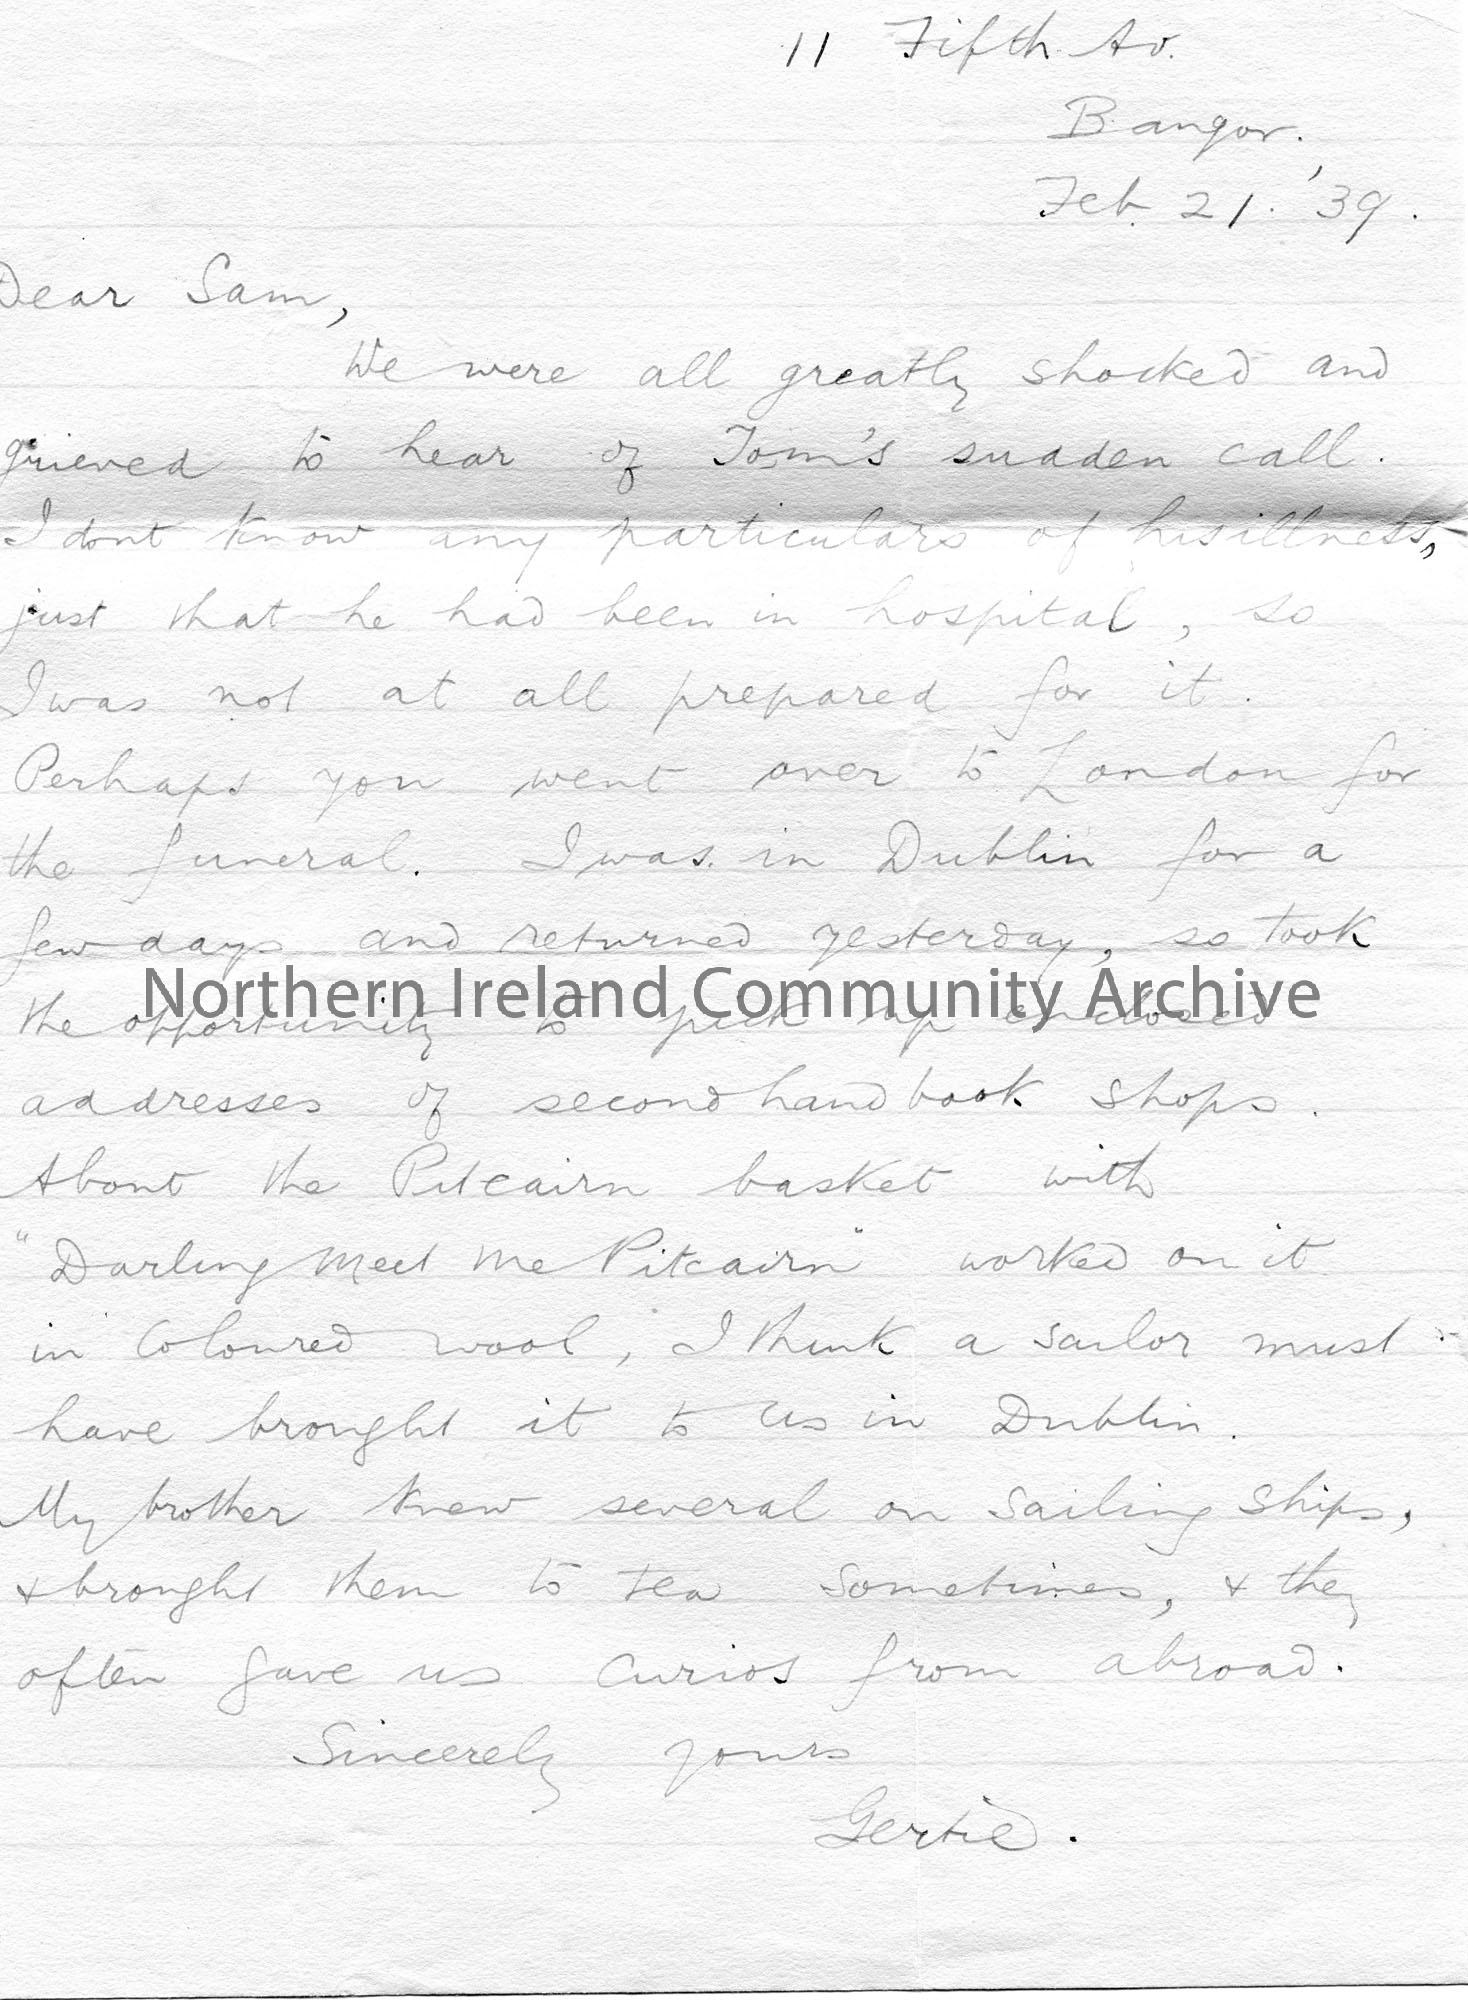 11 Fifth Av.
Bangor.
Feb. 21. '39.
Dear Sam,
We were all greatly shocked and
grieved to hear of Tom's sudden call.
I dont know any particulars of his illness,
just that he had been in hospital, so
I was not at all prepared for it.
Perhaps you went over to London for
the funeral. I was in Dublin for a
few days and returned yesterday, so took
Northern Ireland Community Archive
the opportunity to pick up enclosed
addresses of secondhand book shops.
About the Pitcairn basket with
"Darling Meet Me Pitcairn" worked on it
in coloured wool, I think a sailor must
have brought it to us in Dublin.
My brother knew several on sailing ships,
& brought them to tea sometimes, & they
often gave us curios from abroad.
Sincerely yours
Gertie.